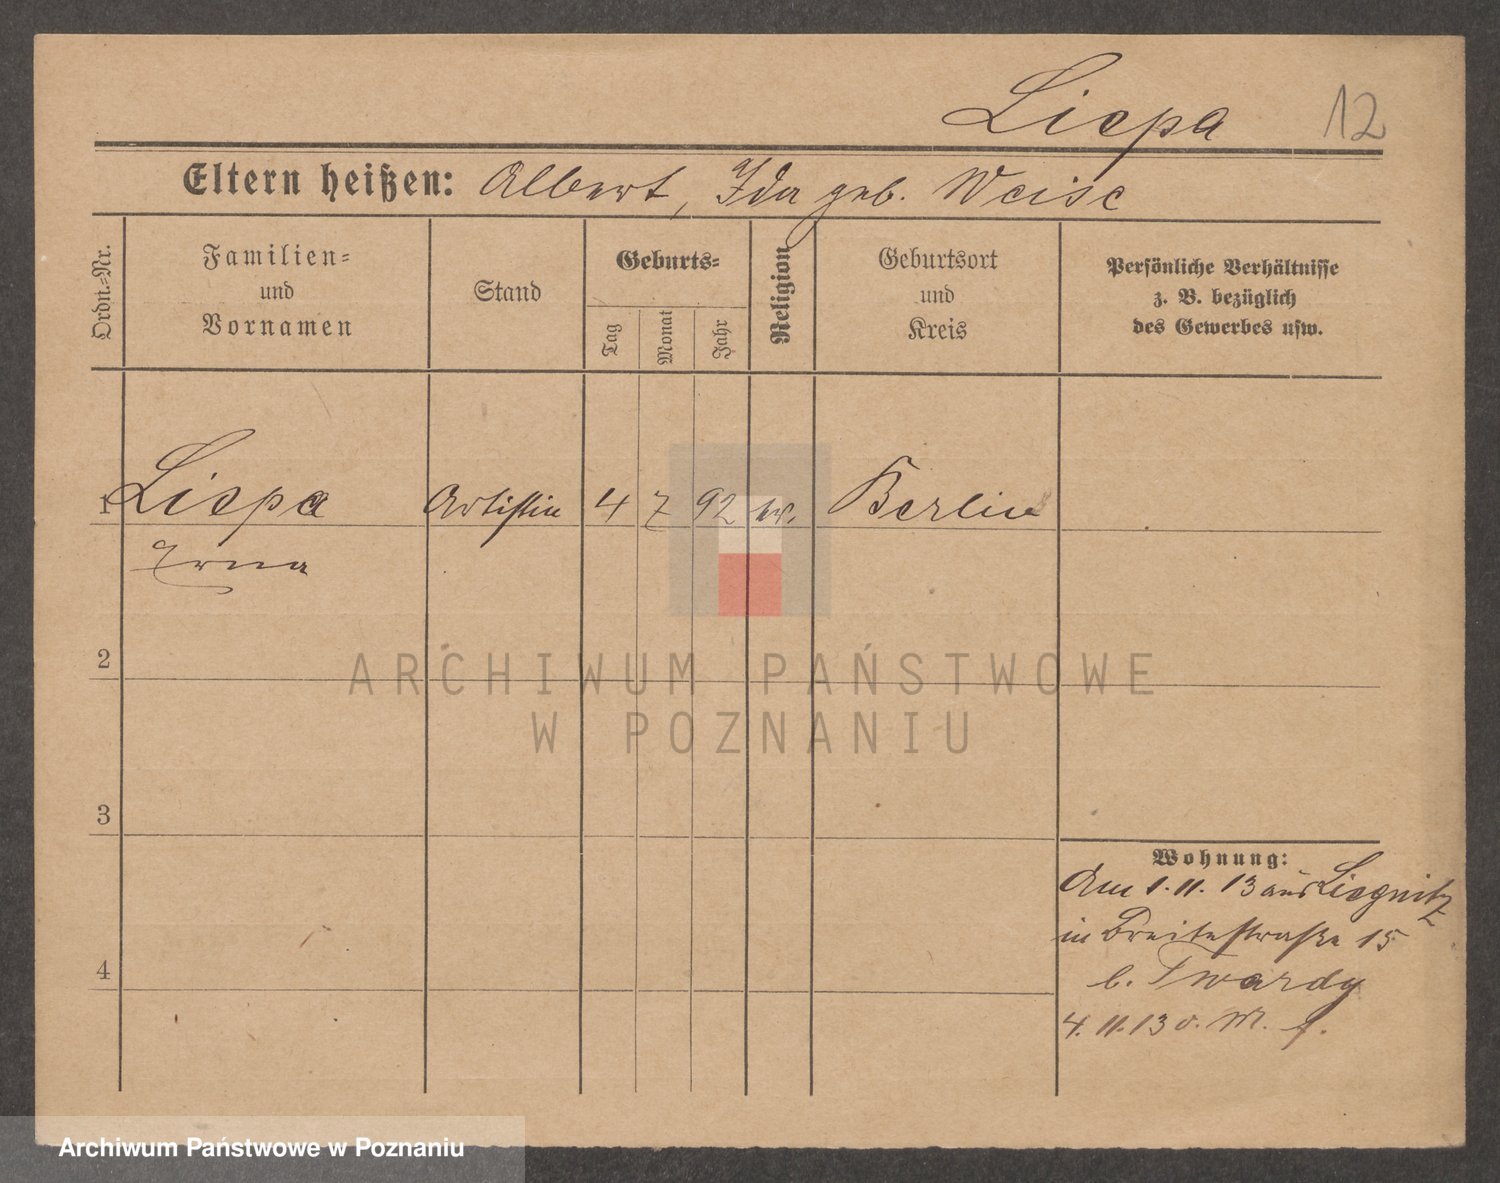 Liepa 12
Eltern heißen: Albert, Ida geb. Weise
Ordn.=Nr.
Familien=
und
Vornamen
Stand
Geburts=
Tag
Monat
Jahr
Religion
Geburtsort
und
Kreis
Persönliche Verhältnisse
z. B. bezüglich
des Gewerbes usw.
1 Liepa Artistin 4 7 92 ev. Berlin
Erna
2
3
4
Wohnung:
Am 1.11.13 aus Liegnitz
in Breitestraße 15
b. Twardy
4.11.13 o. M.
ARCHIWUM PAŃSTWOWE
W POZNANIU
Archiwum Państwowe w Poznaniu